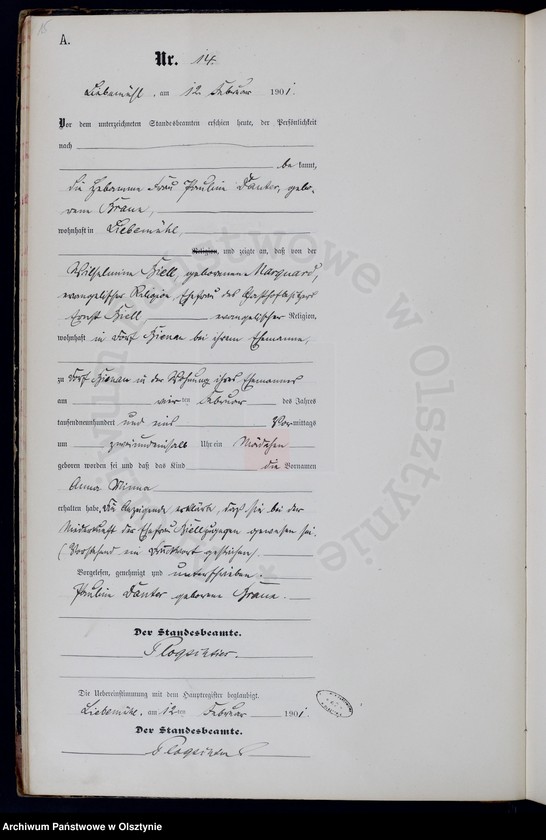 A.
Nr. 14.
Liebemühl, am 12. Februar 1901.
Vor dem unterzeichneten Standesbeamten erschien heute, der Persönlichkeit
nach
bekannt,
die Hebamme Frau Pauline Danter, gebo-
rene Braun,
wohnhaft in Liebemühl,
Religion, und zeigte an, daß von der
Wilhelmine Kiell, geborenen Marquard,
evangelischer Religion, Ehefrau des Gasthofbesitzers
Ernst Kiell evangelischer Religion,
wohnhaft in Dorf Bienau bei ihrem Ehemanne,
zu Dorf Bienau in der Wohnung ihres Ehemannes
am vierten Februar des Jahres
tausendneunhundert und eins Vormittags
um Uhr ein Mädchen
geboren worden sei und daß das Kind die Vornamen
Anna Minna
erhalten habe. Die Anzeigende erklärte, daß sie bei der
Niederkunft der Ehefrau Kiell zugegen gewesen sei.
(Vorstehend ein Druckwort gestrichen).
Vorgelesen, genehmigt und unterschrieben.
Pauline Danter geborene Braun.
Der Standesbeamte.
Die Uebereinstimmung mit dem Hauptregister beglaubigt.
Liebemühl, am 12ten Februar 1901.
Der Standesbeamte.
Archiwum Państwowe w Olsztynie